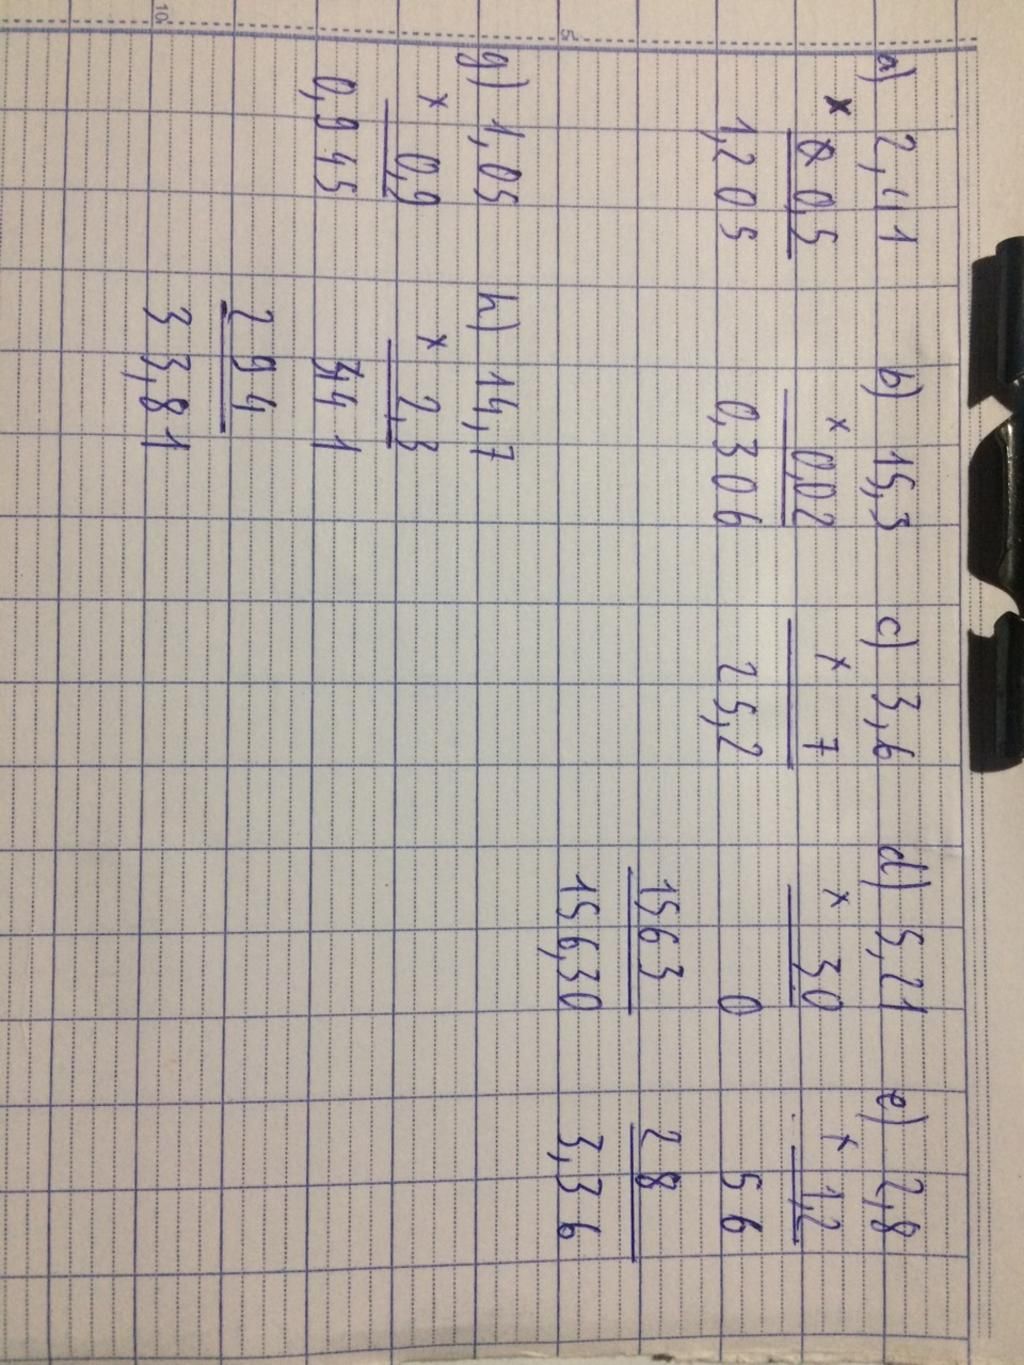 a) 2,41 b) 15,3 c) 3,6 d) 5,21 e) 2,8
x 0,5 x 0,02 x 7 x 30 x 1,2
1,205 0,306 25,2 0 56
1563 28
5 156,30 3,36
g) 1,05 h) 14,7
x 0,9 x 2,3
0,945 441
294
10 33,81